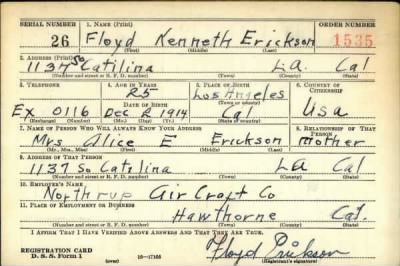 SERIAL NUMBER 1. NAME (Print) ORDER NUMBER
26 Floyd Kenneth Erickson 1535
(First) (Middle) (Last)
2. ADDRESS (Print)
1137 So Catilina LA. Cal
(Number and street or R. F. D. number) (Town) (County) (State)
3. TELEPHONE 4. AGE IN YEARS 5. PLACE OF BIRTH 6. COUNTRY OF CITIZENSHIP
25 Los Angeles
DATE OF BIRTH (Town or county)
Ex 0116 Dec 2 1914 Cal Usa
(Exchange) (Number) (Mo.) (Day) (Yr.) (State or country)
7. NAME OF PERSON WHO WILL ALWAYS KNOW YOUR ADDRESS 8. RELATIONSHIP OF THAT PERSON
Mrs Alice E Erickson mother
(Mr., Mrs., Miss) (First) (Middle) (Last)
9. ADDRESS OF THAT PERSON
1137 So Catilina LA Cal
(Number and street or R. F. D. number) (Town) (County) (State)
10. EMPLOYER'S NAME
Northrup Air Craft Co
11. PLACE OF EMPLOYMENT OR BUSINESS
Hawthorne Cal.
(Number and street or R. F. D. number) (Town) (County) (State)
I AFFIRM THAT I HAVE VERIFIED ABOVE ANSWERS AND THAT THEY ARE TRUE.
REGISTRATION CARD
D. S. S. Form 1 16-17105 Floyd Erickson
(Registrant's signature)